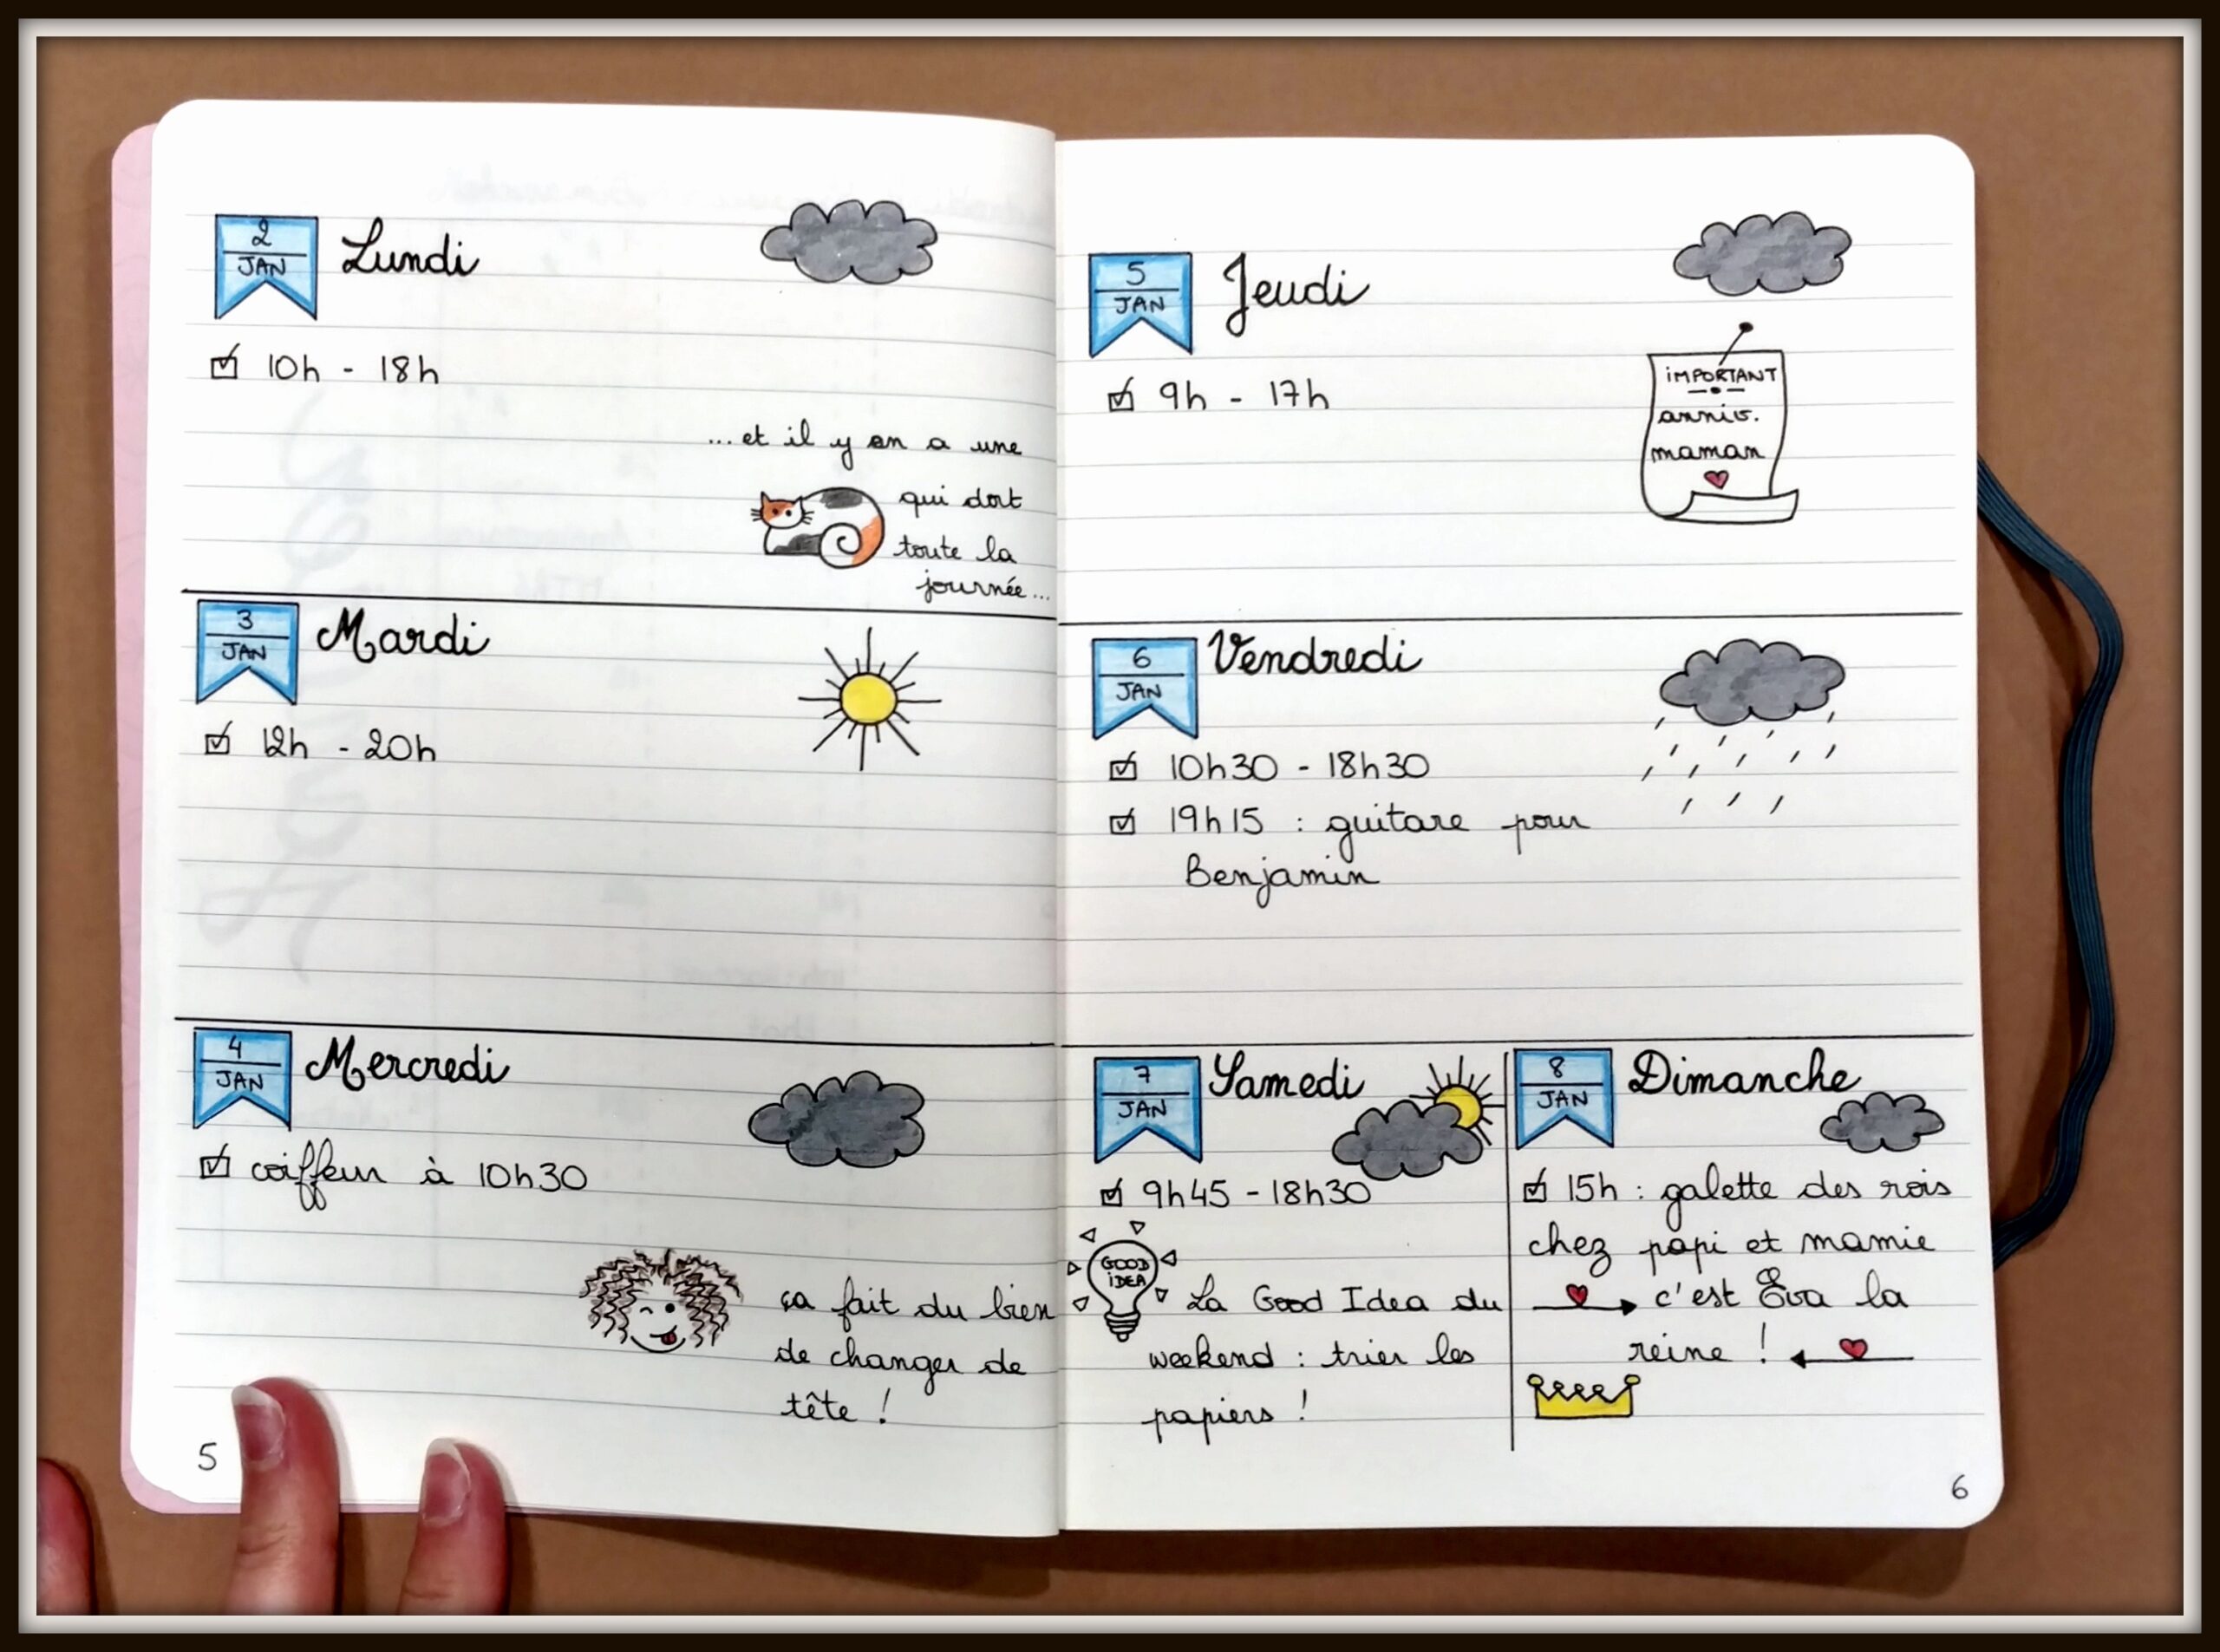 2
JAN
Lundi
10h - 18h
...et il y en a une
qui dort
toute la
journée...
3
JAN
Mardi
12h - 20h
4
JAN
Mercredi
coiffeur à 10h30
ça fait du bien
de changer de
tête !
5
5
JAN
Jeudi
9h - 17h
iMPORTANT
anniv.
maman
6
JAN
Vendredi
10h30 - 18h30
19h15 : guitare pour
Benjamin
7
JAN
Samedi
9h45 - 18h30
GOOD
iDEA
La Good Idea du
weekend : trier les
papiers !
8
JAN
Dimanche
15h : galette des rois
chez papi et mamie
c'est Eva la
reine !
6